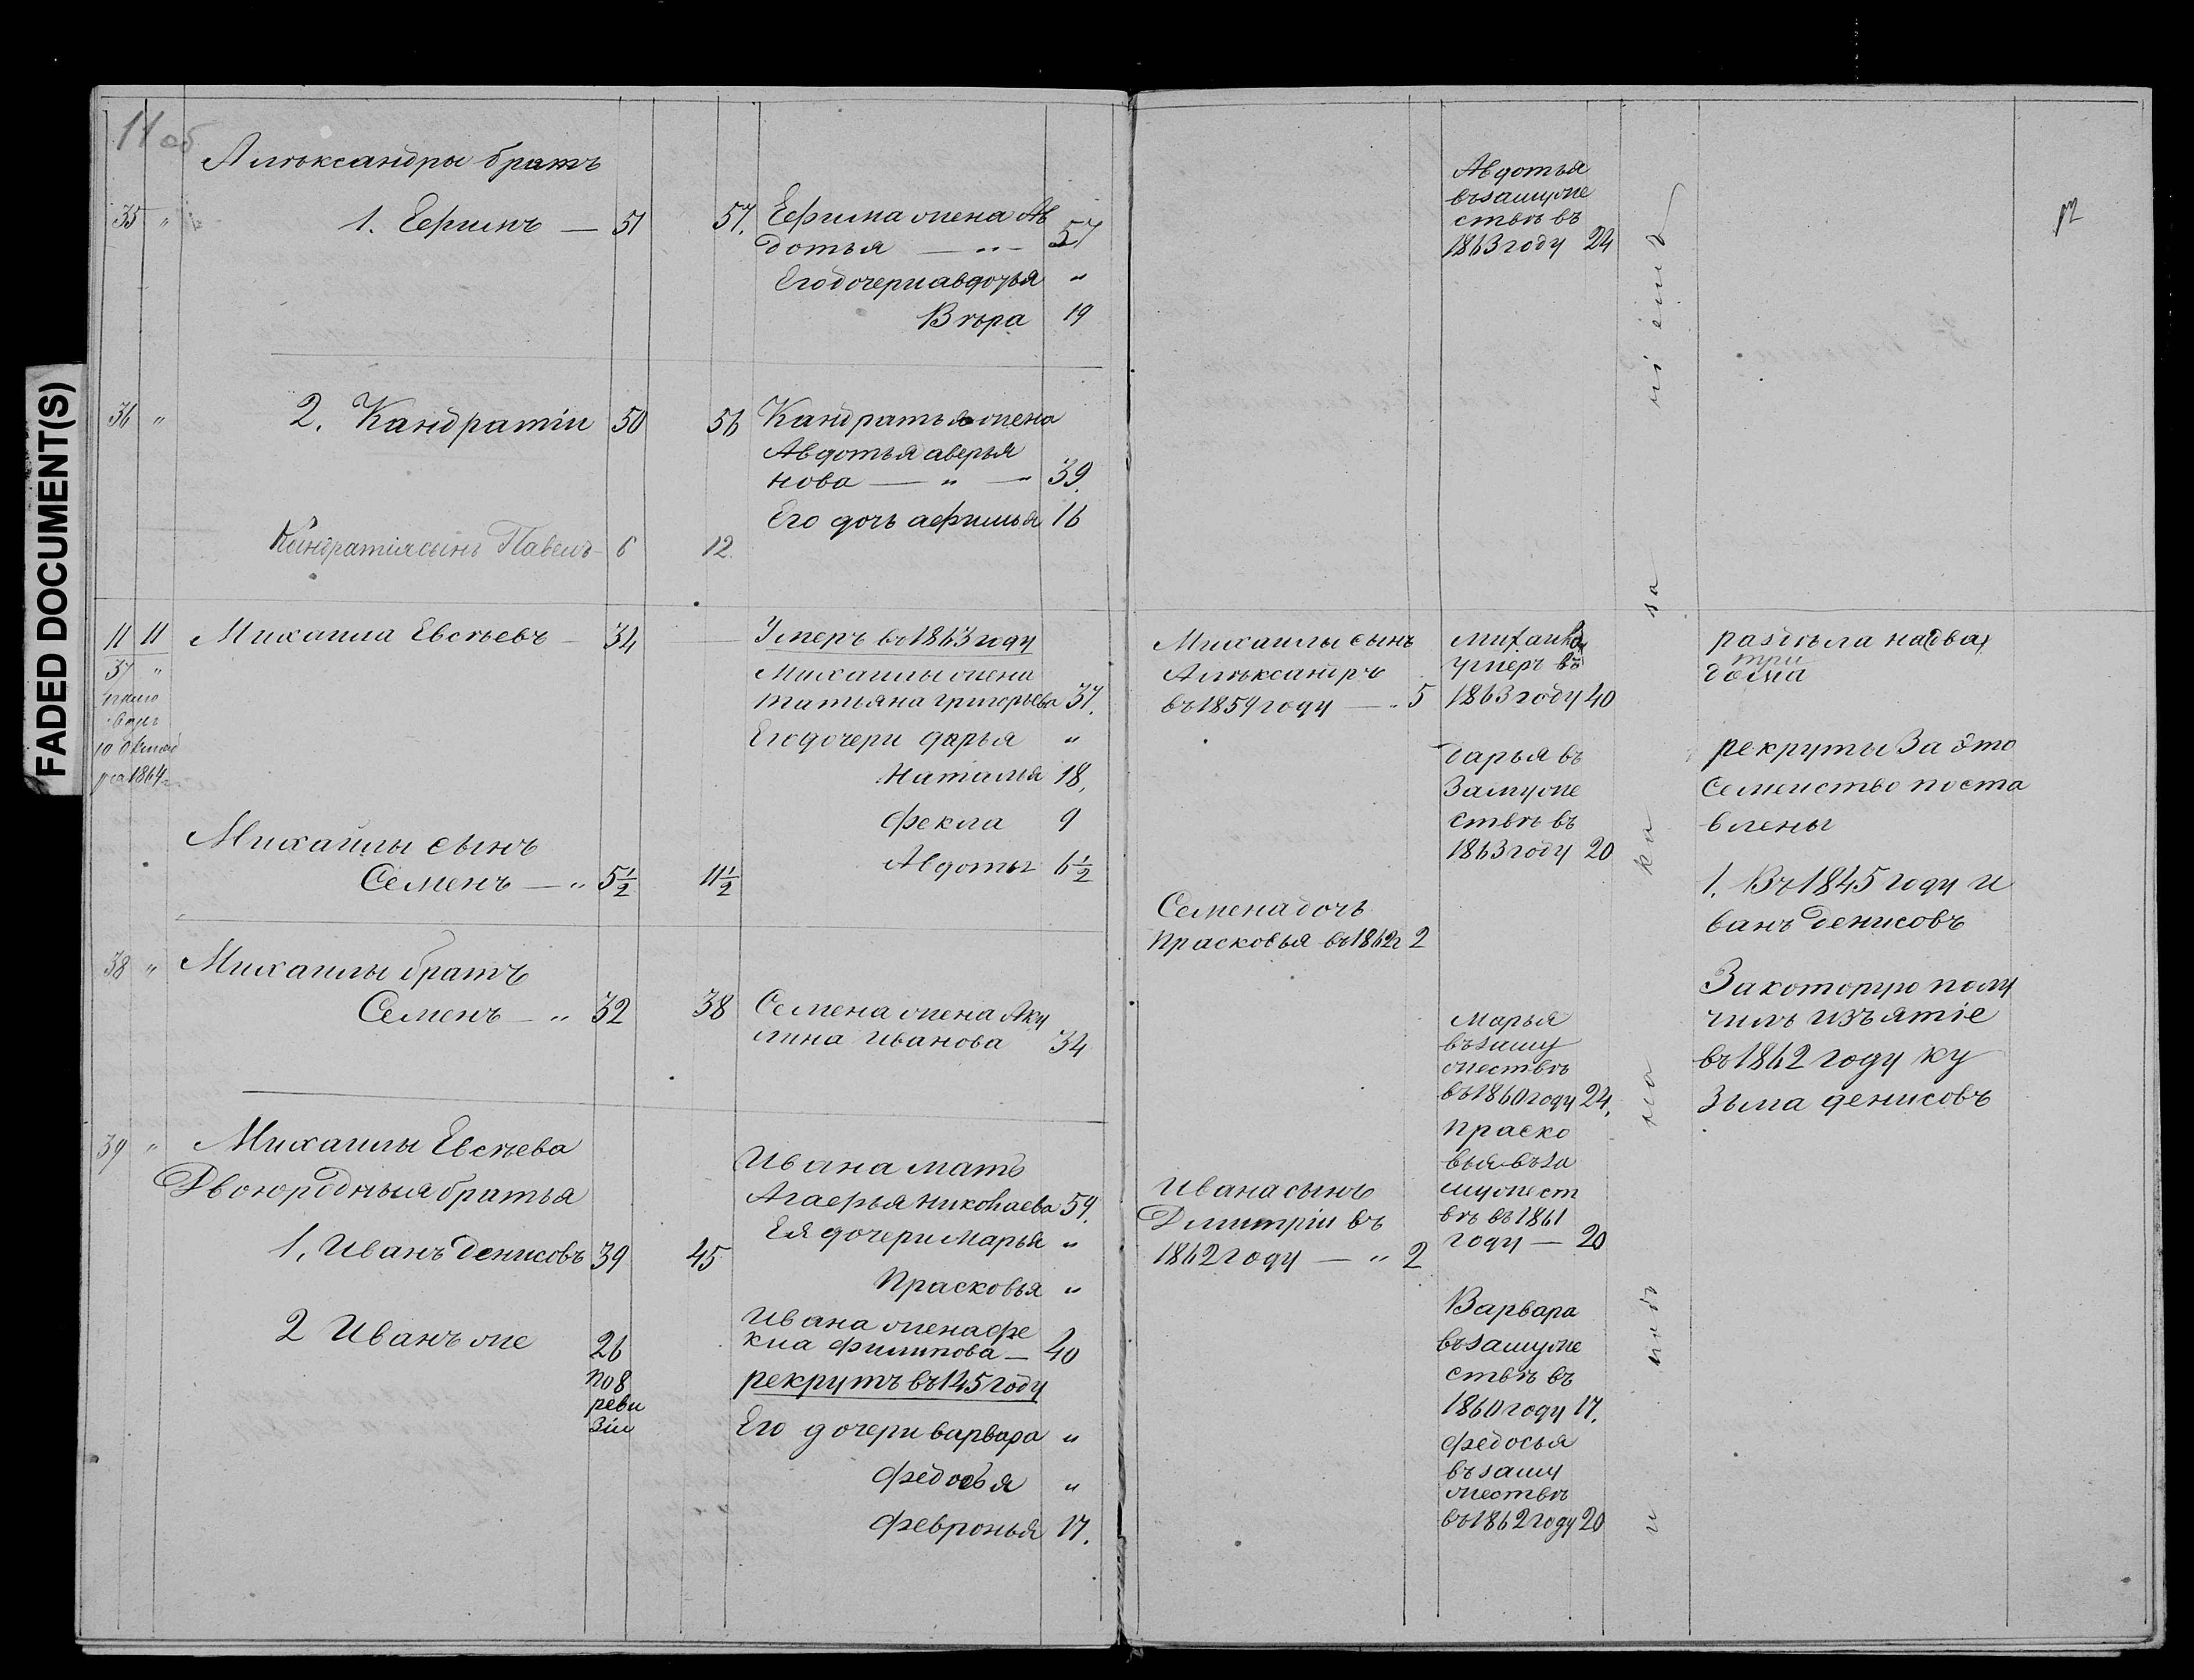 FADED DOCUMENT(S)
11 об
Алѣксандры братъ
35 " 1. Ефимъ — 51 57. Ефима жена Ав
дотья — " — 57
Его дочери авдотья "
Вѣра 19
36 " 2. Кандратіи 50 56 Кандратья жена
Авдотья аверья
нова — " — 39.
Его дочь афимья 16
Кандратія сынъ Павелъ 6 12.
11 11 Михаила Евсѣевъ — 34 — Умеръ въ 1863 году
37 "
Михаилы жена
татьяна григорьева 37.
Его дочери дарья "
Наталья 18,
фекла 9
Авдотья 6½
10 Октяб
ря 1864
Михаилы сынъ
Семенъ — " 5½ 11½
38 " Михаилы братъ
Семенъ — " 32 38 Семена жена Аку
лина иванова 34
39 " Михаилы Евсѣева
Двоюродныя братья
1, Иванъ денисовъ 39 45
Ивана мать
Агафья николаева 59.
Ея дочери марья "
Прасковья "
2 Иванъ же 26
по 8
реви
зіи
Ивана жена фе
кла филипова — 40
рекрутъ въ 145 году
Его дочери варвара "
Федосья "
февронья 17.
Михаилы сынъ
Алѣксандръ
въ 1859 году — " 5
Семена дочь
Прасковья въ 1862г 2
Ивана сынъ
Дмитріи въ
1862 году — " 2
Авдотья
въ замуже
ствѣ въ
1863 году 24
михаила
умеръ въ
1863 году 40
дарья въ
Замуже
ствѣ въ
1863 году 20
марья
въ заму
жествѣ
въ 1860 году 24,
Праско
вья въ за
мужест
вѣ въ 1861
году — 20
Варвара
въ замуже
ствѣ въ
1860 году 17.
федосья
въ заму
жествѣ
въ 1862 году 20
раздѣла на два
три
дома
рекруты За это
Семеиство поста
влены
1. Въ 1845 году и
ванъ денисовъ
За которую полу
чилъ изъятіе
въ 1862 году ку
Зьма денисовъ